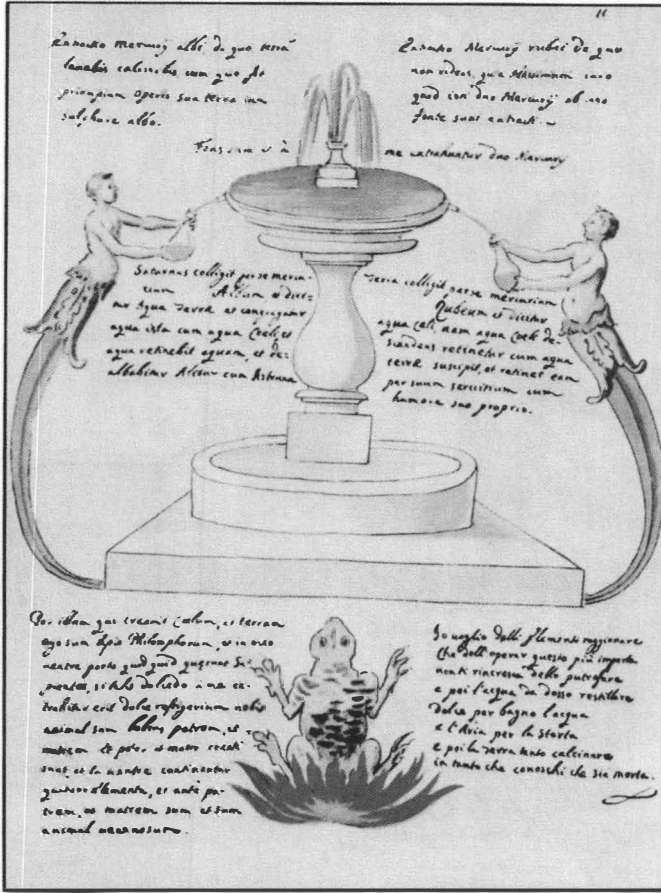 11
mercurij albi, de quo terrã
cum quo fit
principium operis sua terra cum
sulphure albo.
Mercurij rubei de quo
non videas, quia
quod isti duo Mercurij ab uno
fonte sunt extracti.
Fons à me extrahuntur duo Mercurij
Saturnus colligit per se mercu-
rium Album et dici-
tur Aqua Terræ et coniungitur
aqua ista cum aqua Cœli, et
aqua retinebit aquam, et de-
albabitur cum
colligit per se mercurium
Rubeum et dicitur
aqua Cœli, nam aqua Cœli de-
scendens retinetur cum aqua
terræ suscipit, et retinet eam
per suum servitium cum
humore suo proprio.
Per illum qui creavit Cœlum, et terram
ego sum lapis Philosophorum, et in meo
ventre porto quid quid quærunt Sa-
pientes, si
trahitur erit dolce refrigerium nobis
animal sum habens patrem, et
matrem et pater, et mater creati
sunt et in ventre continentur
quatuor elementa, et ante pa-
trem, et matrem sum et sum
animal venenosum.
Io voglio delli Elementi raggionare
che dell'opera questo più importa
non ti rincresca dello putrefare
e poi l'acqua da dosso restillare
dolce per bagno l'acqua
e l'Aria per la Storta
e poi la Terra tanto calcinare
in tanto che conoschi che sia morta.